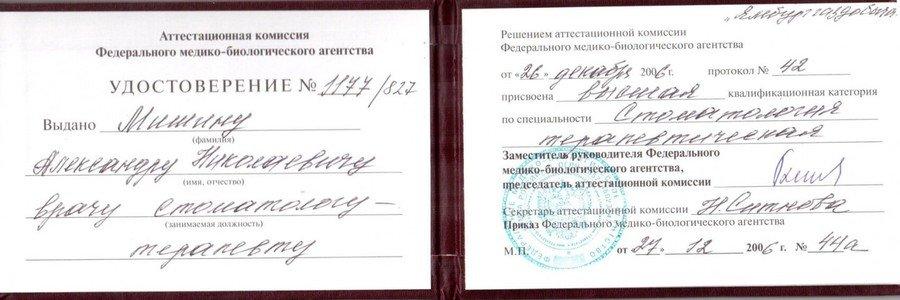 Аттестационная комиссия
Федерального медико-биологического агентства
УДОСТОВЕРЕНИЕ № 1177/827
Выдано Мишину
(фамилия)
Александру Николаевичу
(имя, отчество)
врачу стоматологу-
(занимаемая должность)
терапевту
"Ямбурггаздобыча"
Решением аттестационной комиссии
Федерального медико-биологического агентства
от «26» декабря 2006 г. протокол № 42
присвоена высшая квалификационная категория
по специальности Стоматология
терапевтическая
Заместитель руководителя Федерального
медико-биологического агентства,
председатель аттестационной комиссии
Секретарь аттестационной комиссии Н.Ситнова
Приказ Федерального медико-биологического агентства
М.П. от «27» 12 2006 г. № 44а